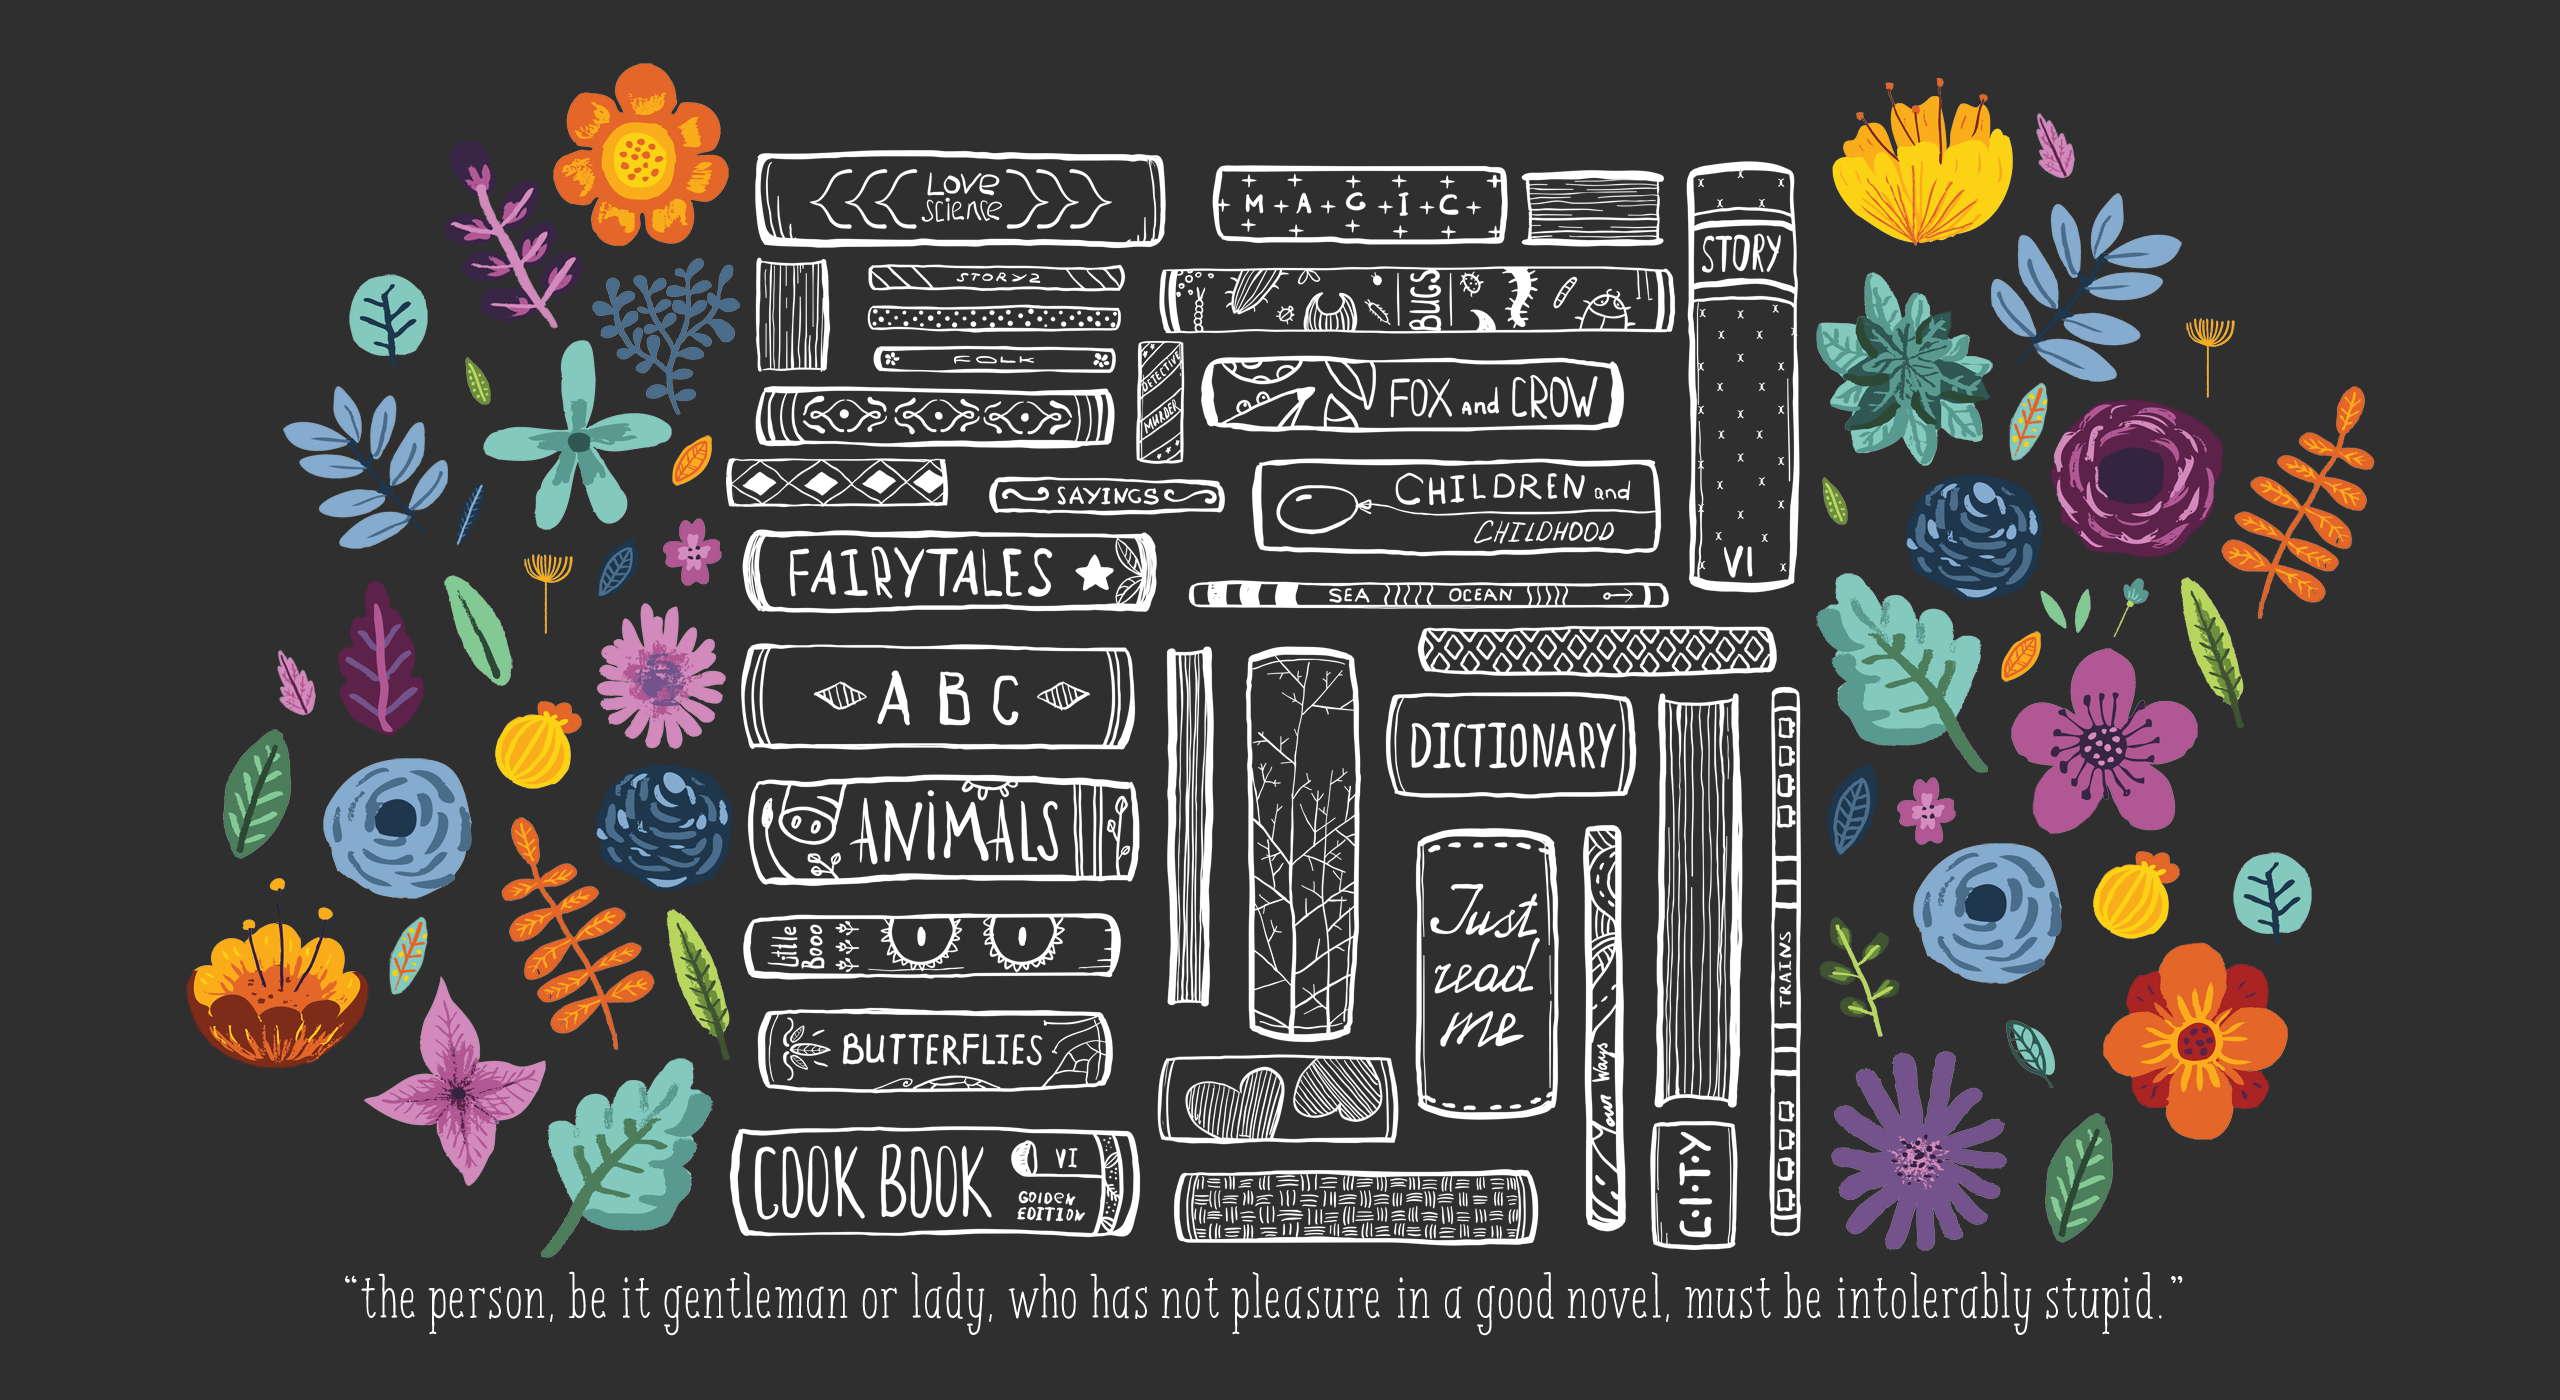 LOVE
science
M A G I C
STORY
VI
STORYZ
BUGS
FOLK
DETECTIVE
MURDER
FOX and CROW
SAYINGS
CHILDREN and
CHILDHOOD
FAIRYTALES
SEA OCEAN
A B C
DICTIONARY
ANIMALS
Just
read
me
Little
Booo
TRAINS
BUTTERFLIES
Your Ways
COOK BOOK
VI
GOLDEN
EDITION
C·I·T·Y
“the person, be it gentleman or lady, who has not pleasure in a good novel, must be intolerably stupid.”